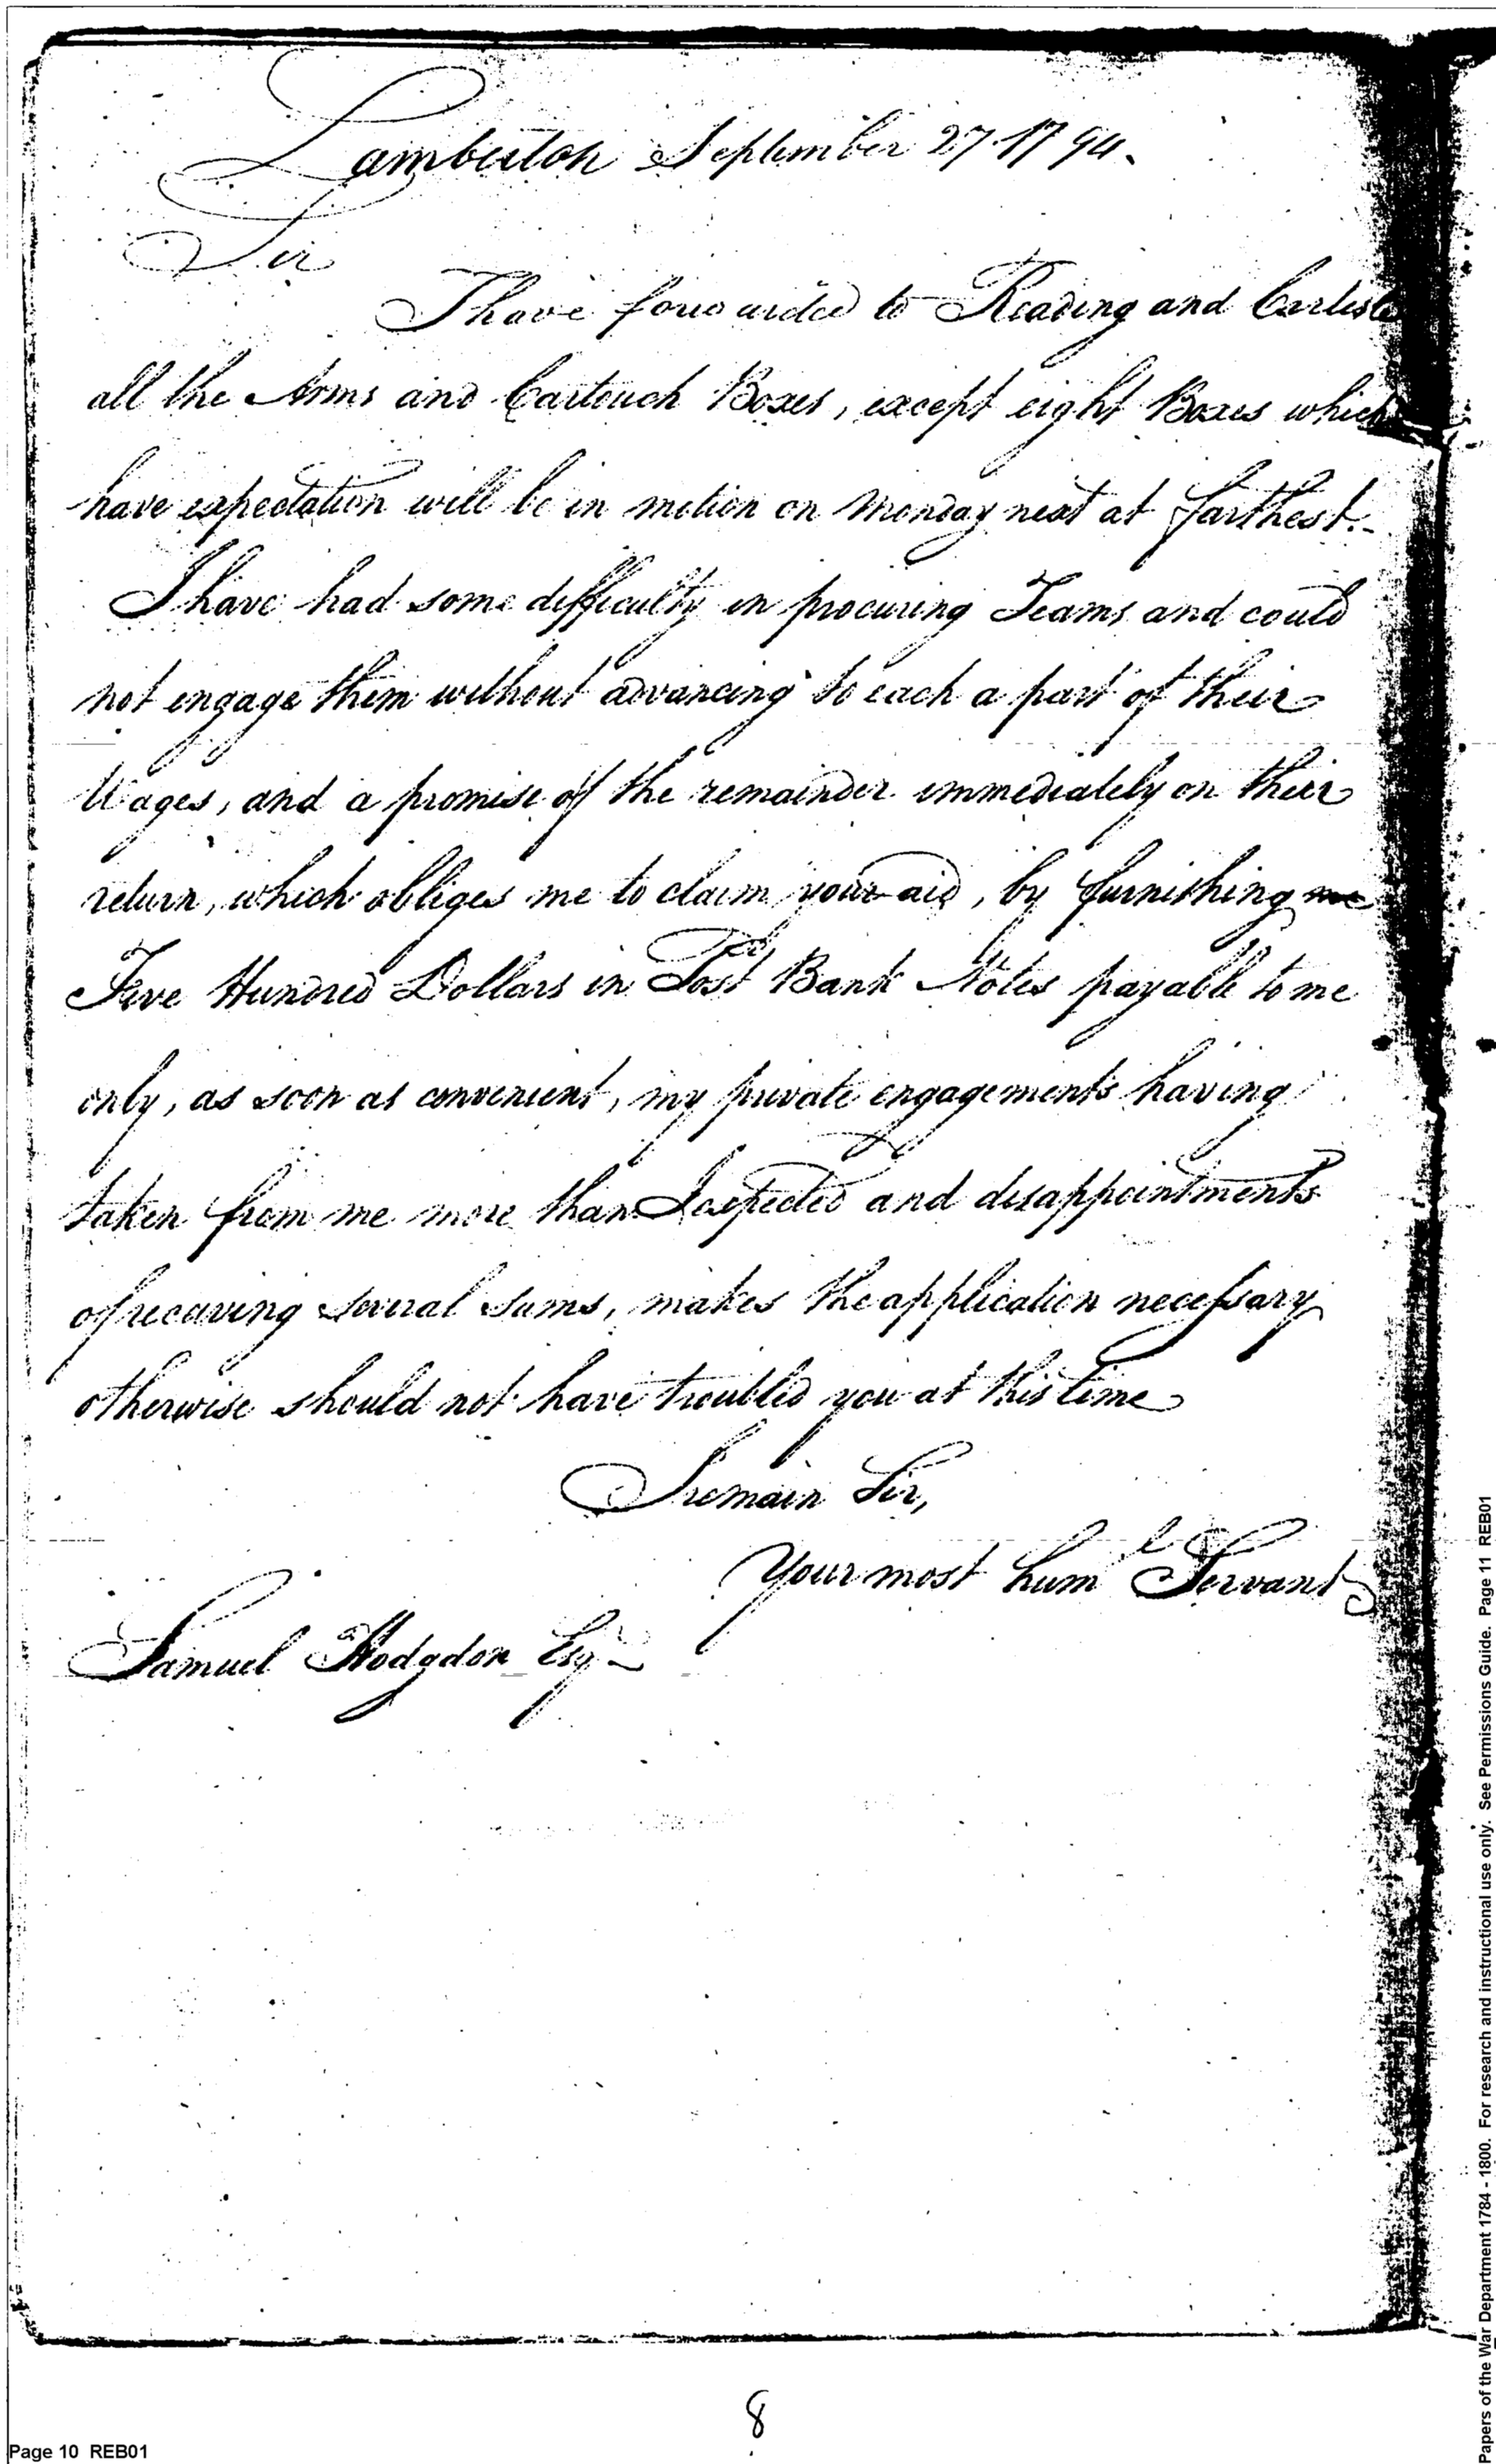 Lamberton September 27 1794.
Sir
I have forwarded to Reading and Carlisle
all the Arms and Cartouch Boxes, except eight Boxes which
have expectation will be in motion on Monday next at farthest.
I have had some difficulty in procuring Teams and could
not engage them without advancing to each a part of their
Wages, and a promise of the remainder immediately on their
return, which obliges me to claim your aid, by furnishing me
Five Hundred Dollars in Post Bank Notes payable to me
only, as soon as convenient, my private engagements having
taken from me more than I expected and disappointments
of receiving several sums, makes the application necessary
otherwise should not have troubled you at this time
I remain Sir,
Your most huml Servant
Samuel Hodgdon Esqr
8
Page 10 REB01
Papers of the War Department 1784 - 1800. For research and instructional use only. See Permissions Guide. Page 11 REB01